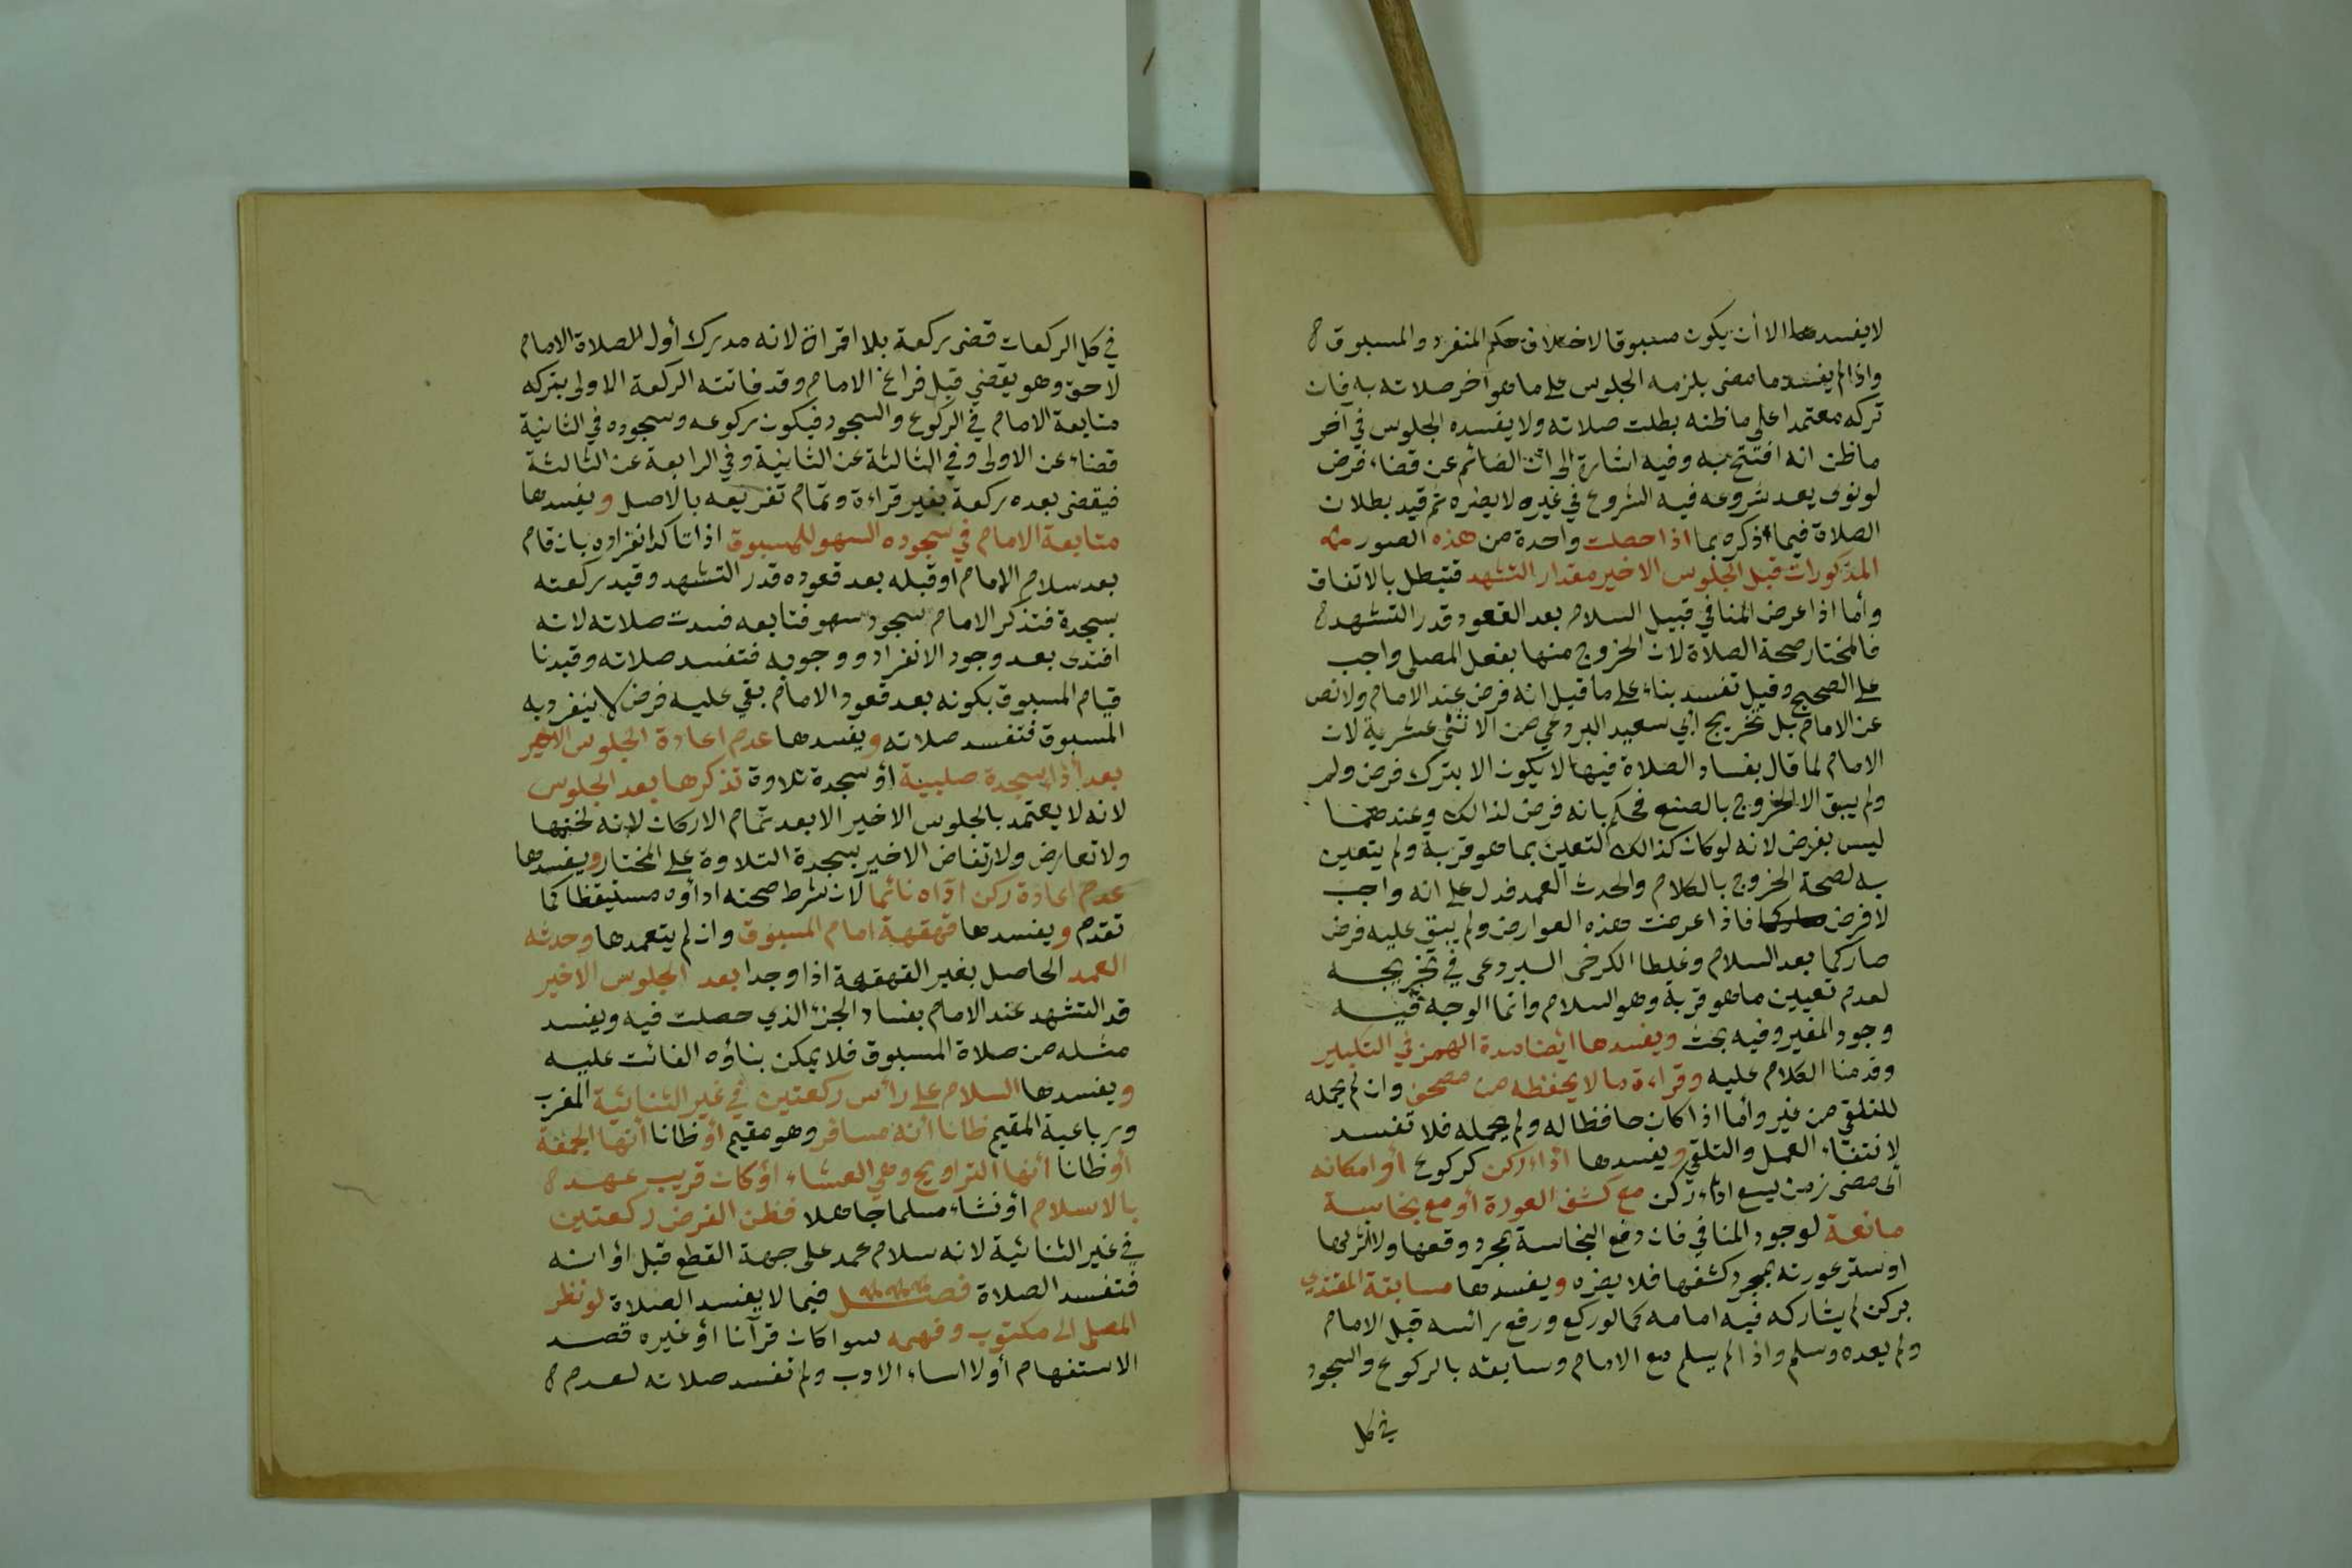 لا يفسدها الا أن يكون مسبوقا لاختلاف حكم المنفرد والمسبوق
واذا لم يفسد ما مضى يلزمه الجلوس على ما هو آخر صلاته به فان
تركه معتمدا على ما ظنه بطلت صلاته ولا يفسده الجلوس في آخر
ما ظن انه افتتح به وفيه اشارة الى ان الصائم عن قضاء فرض
لو نوى بعد شروعه فيه الشروع في غيره لا يضره ثم قيد بطلان
الصلاة فيما ذكره بما اذا حصلت واحدة من هذه الصور
المذكورات قبل الجلوس الاخير مقدار التشهد فتبطل بالاتفاق
وأما اذا عرض المنافي قبيل السلام بعد القعود قدر التشهد
فالمختار صحة الصلاة لان الخروج منها بفعل المصلى واجب
على الصحيح وقيل تفسد بناء على ما قيل انه فرض عند الامام ولا نص
عن الامام بل تخريج ابي سعيد البردعي من الاثني عشرية لان
الامام لما قال بفساد الصلاة فيها لا يكون الا بترك فرض ولم
ولم يبق الا الخروج بالصنع فحكم بانه فرض لذالك وعندهما
ليس بفرض لانه لو كان كذالك لتعين بما هو قربة ولم يتعين
به لصحة الخروج بالكلام والحدث العمد فدل على انه واجب
لا فرض فاذا عرضت هذه العوارض ولم يبق عليه فرض
صار كما بعد السلام وغلطا الكرخى البردعى في تخريجه
لعدم تعيين ما هو قربة وهو السلام وانما الوجه فيه
وجود المغير وفيه بحث ويفسدها ايضا مدة الهمز في التكبير
وقدمنا الكلام عليه وقراءة ما لا يحفظه من مصحف وان لم يحمله
للتلقي من غير وأما اذا كان حافظا له ولم يحمله فلا تفسد
لانتفاء العمل والتلقي ويفسدها اذاء ركن كركوع أو امكانه
الى مضى زمن يسع اداء ركن مع كشف العورة أو مع نجاسة
مانعة لوجود المنافي فان دفع النجاسة بمجرد وقعها ولا اثر لها
او ستر عورته بمجرد كشفها فلا يضره ويفسدها مسابقة المقتدي
بركن لم يشاركه فيه امامه كما لو ركع ورفع رائسه قبل الامام
ولم يعده وسلم واذا لم يسلم مع الامام وسابقه بالركوع والسجود
في كل
في كل الركعات قضى ركعة بلا اقراة لانه مدرك أول الصلاة الامام
لاحق وهو يقضي قبل فراغ الامام وقد فاتته الركعة الاولى بتركه
متابعة الامام في الركوع والسجود فيكون ركوعه وسجوده في الثانية
قضاء عن الاولى وفي الثالثة عن الثانية وفي الرابعة عن الثالثة
فيقضى بعده ركعة بغير قراءة وتمام تفريعه بالاصل ويفسدها
متابعة الامام في سجوده السهو للمسبوق اذا تاكد انفراده بان قام
بعد سلام الامام او قبله بعد قعوده قدر التشهد وقيد ركعته
بسجدة فتذكر الامام سجود سهو فتابعه فسدت صلاته لانه
اقتدى بعد وجود الانفراد ووجوبه فتفسد صلاته وقيدنا
قيام المسبوق بكونه بعد قعود الامام بقي عليه فرض لا ينفرد به
المسبوق فتفسد صلاته ويفسدها عدم اعادة الجلوس الاخير
بعد أذا سجدة صلبية أو سجدة تلاوة تذكرها بعد الجلوس
لانه لا يعتمد بالجلوس الاخير الا بعد تمام الاركان لانه لختمها
ولا تعارض ولارتفاض الاخير بسجدة التلاوة على المختار ويفسدها
عدم اعادة ركن اداه نائما لان شرط صحته اداؤه مستيقظا كما
تقدم ويفسدها قهقهة امام المسبوق وان لم يتعمدها وحدثه
العمد الحاصل بغير القهقهة اذا وجدا بعد الجلوس الاخير
قد التشهد عند الامام بفساد الجزء الذي حصلت فيه ويفسد
مثله من صلاة المسبوق فلا يمكن بناؤه الفائت عليه
ويفسدها السلام على رأس ركعتين في غير الثنائية المغرب
ورباعية المقيم ظانا أنه مسافر وهو مقيم أو ظانا أنها الجمعة
أو ظانا أنها التراويح وهي العشاء أو كان قريب عهد
بالاسلام أو نشاء مسلما جاهلا فظن الفرض ركعتين
في غير الثنائية لانه سلام عمد على جهة القطع قبل اوانه
فتفسد الصلاة فصل فيما لا يفسد الصلاة لو نظر
المصلى الى مكتوب وفهمه سوا كان قرآنا أو غيره قصد
الاستفهام أو لا اساء الادب ولم تفسد صلاته لعدم